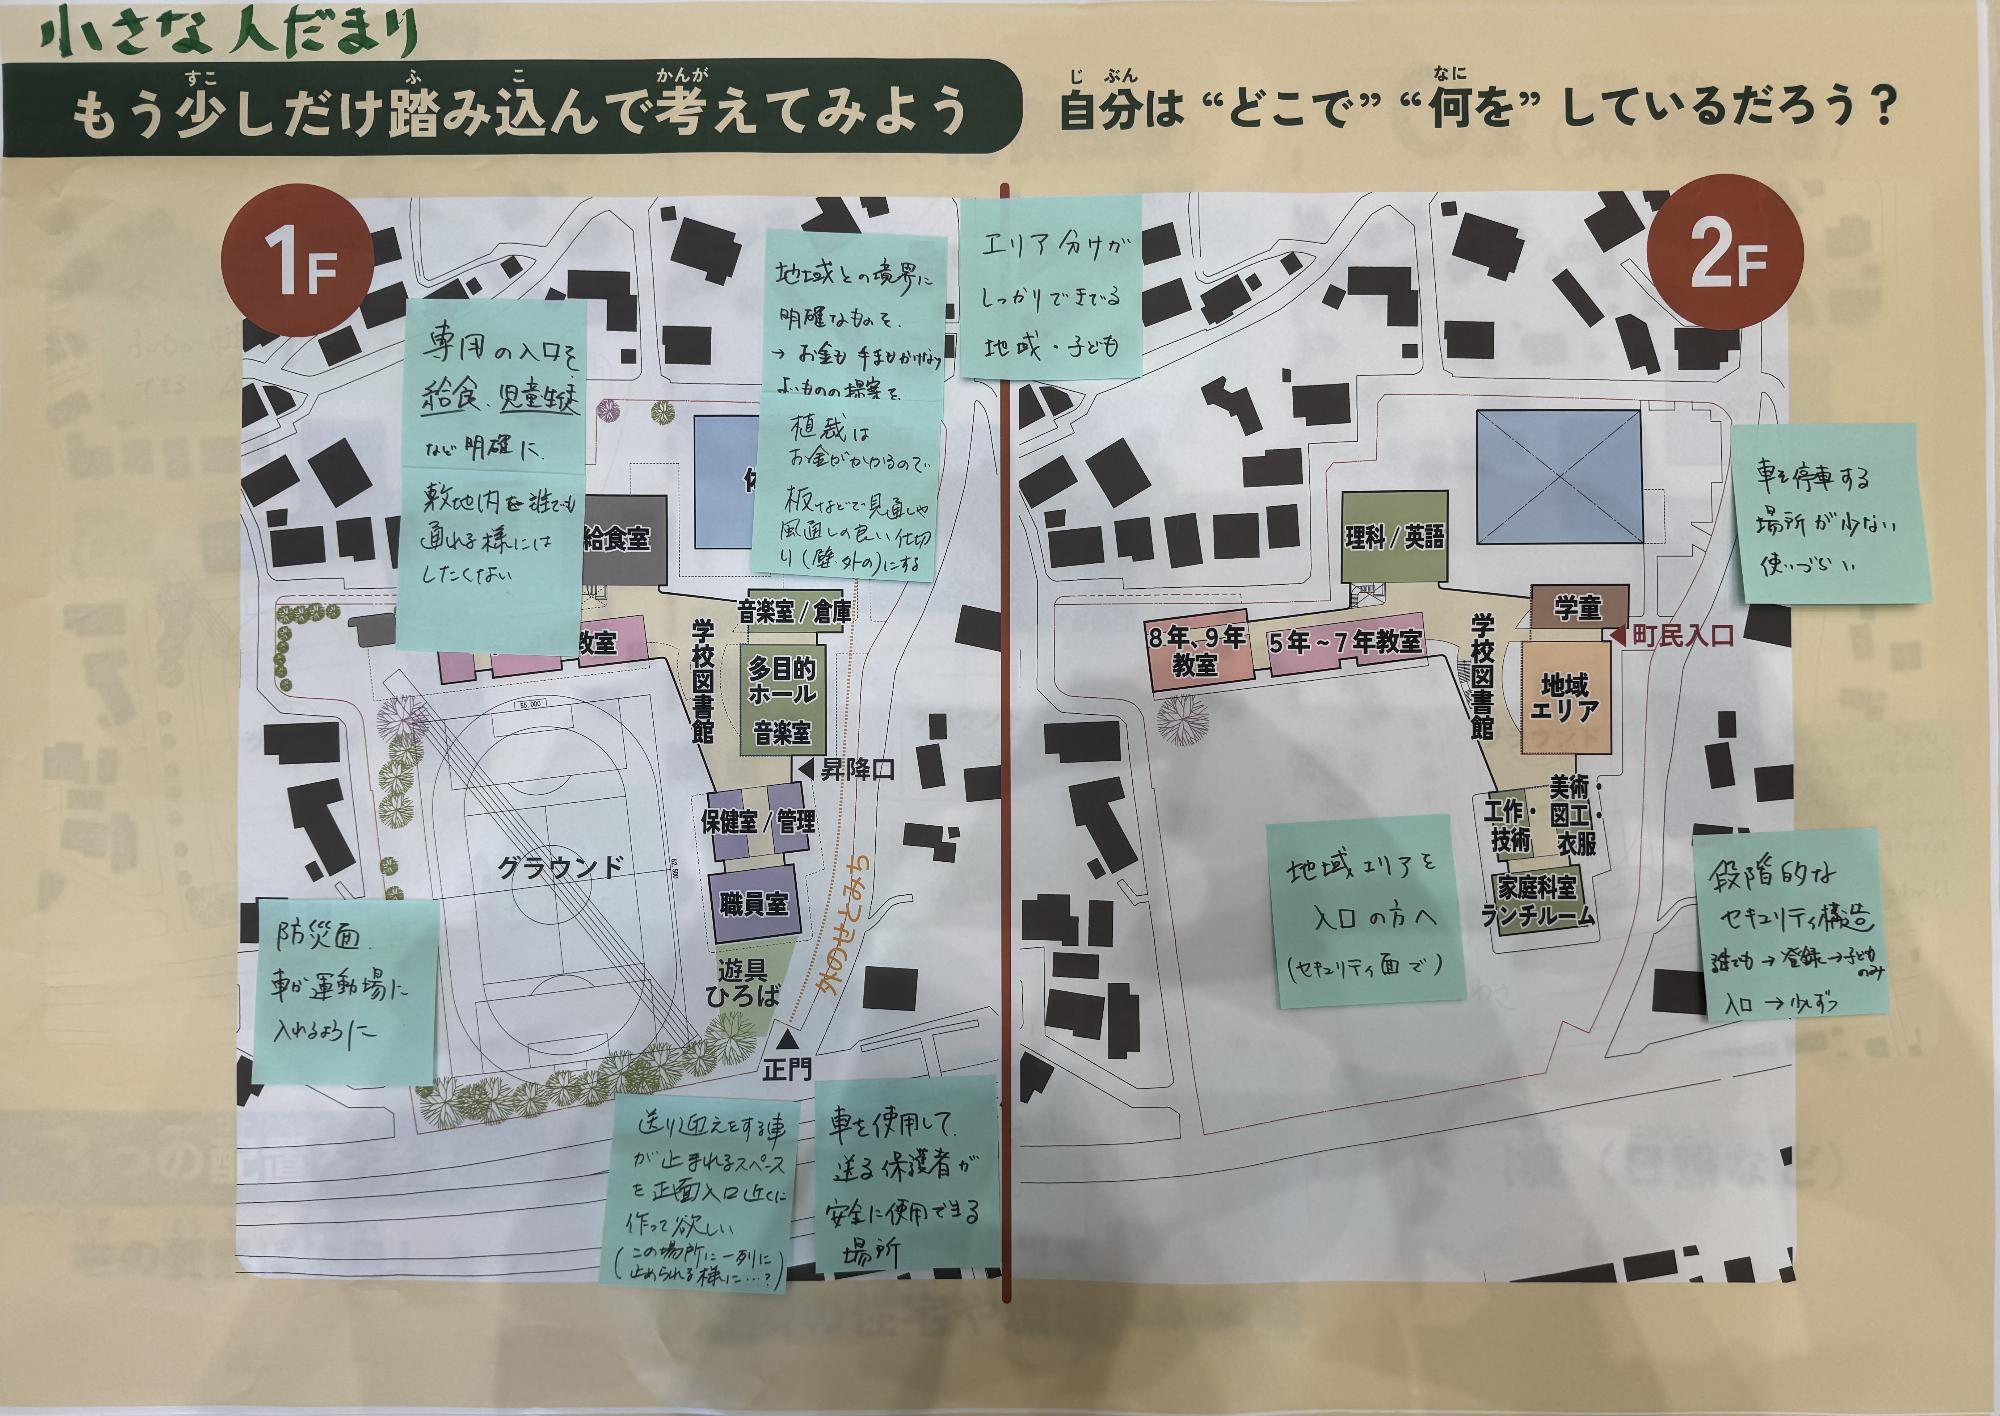 小さな人だまり
もう少しだけ踏み込んで考えてみよう
すこ
ふ
こ
かんが
自分は“どこで”“何を”しているだろう？
じ ぶん
なに
1F
2F
専用の入口を
給食、児童生徒
など明確に、
敷地内を誰でも
通れる様には
したくない
地域との境界に
明確なものを、
→ お金も手まもかけない
よいものの提案を、
植栽は
お金がかかるので
板などで見通しや
風通しの良い仕切
り(壁・外の)にする
エリア分けが
しっかりできてる
地域・子ども
車を停車する
場所が少ない
使いづらい
給食室
教室
学校図書館
音楽室/倉庫
多目的
ホール
音楽室
昇降口
保健室/管理
職員室
グラウンド
遊具
ひろば
外のせとみち
正門
理科/英語
8年、9年
教室
5年～7年教室
学校図書館
学童
町民入口
地域
エリア
工作・
技術
美術・
図工・
衣服
家庭科室
ランチルーム
防災面、
車が運動場に
入れるように
地域エリアを
入口の方へ
(セキュリティ面で)
段階的な
セキュリティ構造
誰でも→登録→子ども
のみ
入口→少しずつ
送り迎えをする車
が止まれるスペース
を正面入口近くに
作って欲しい
(この場所に一列に
止められる様に…?)
車を使用して、
送る保護者が
安全に使用できる
場所